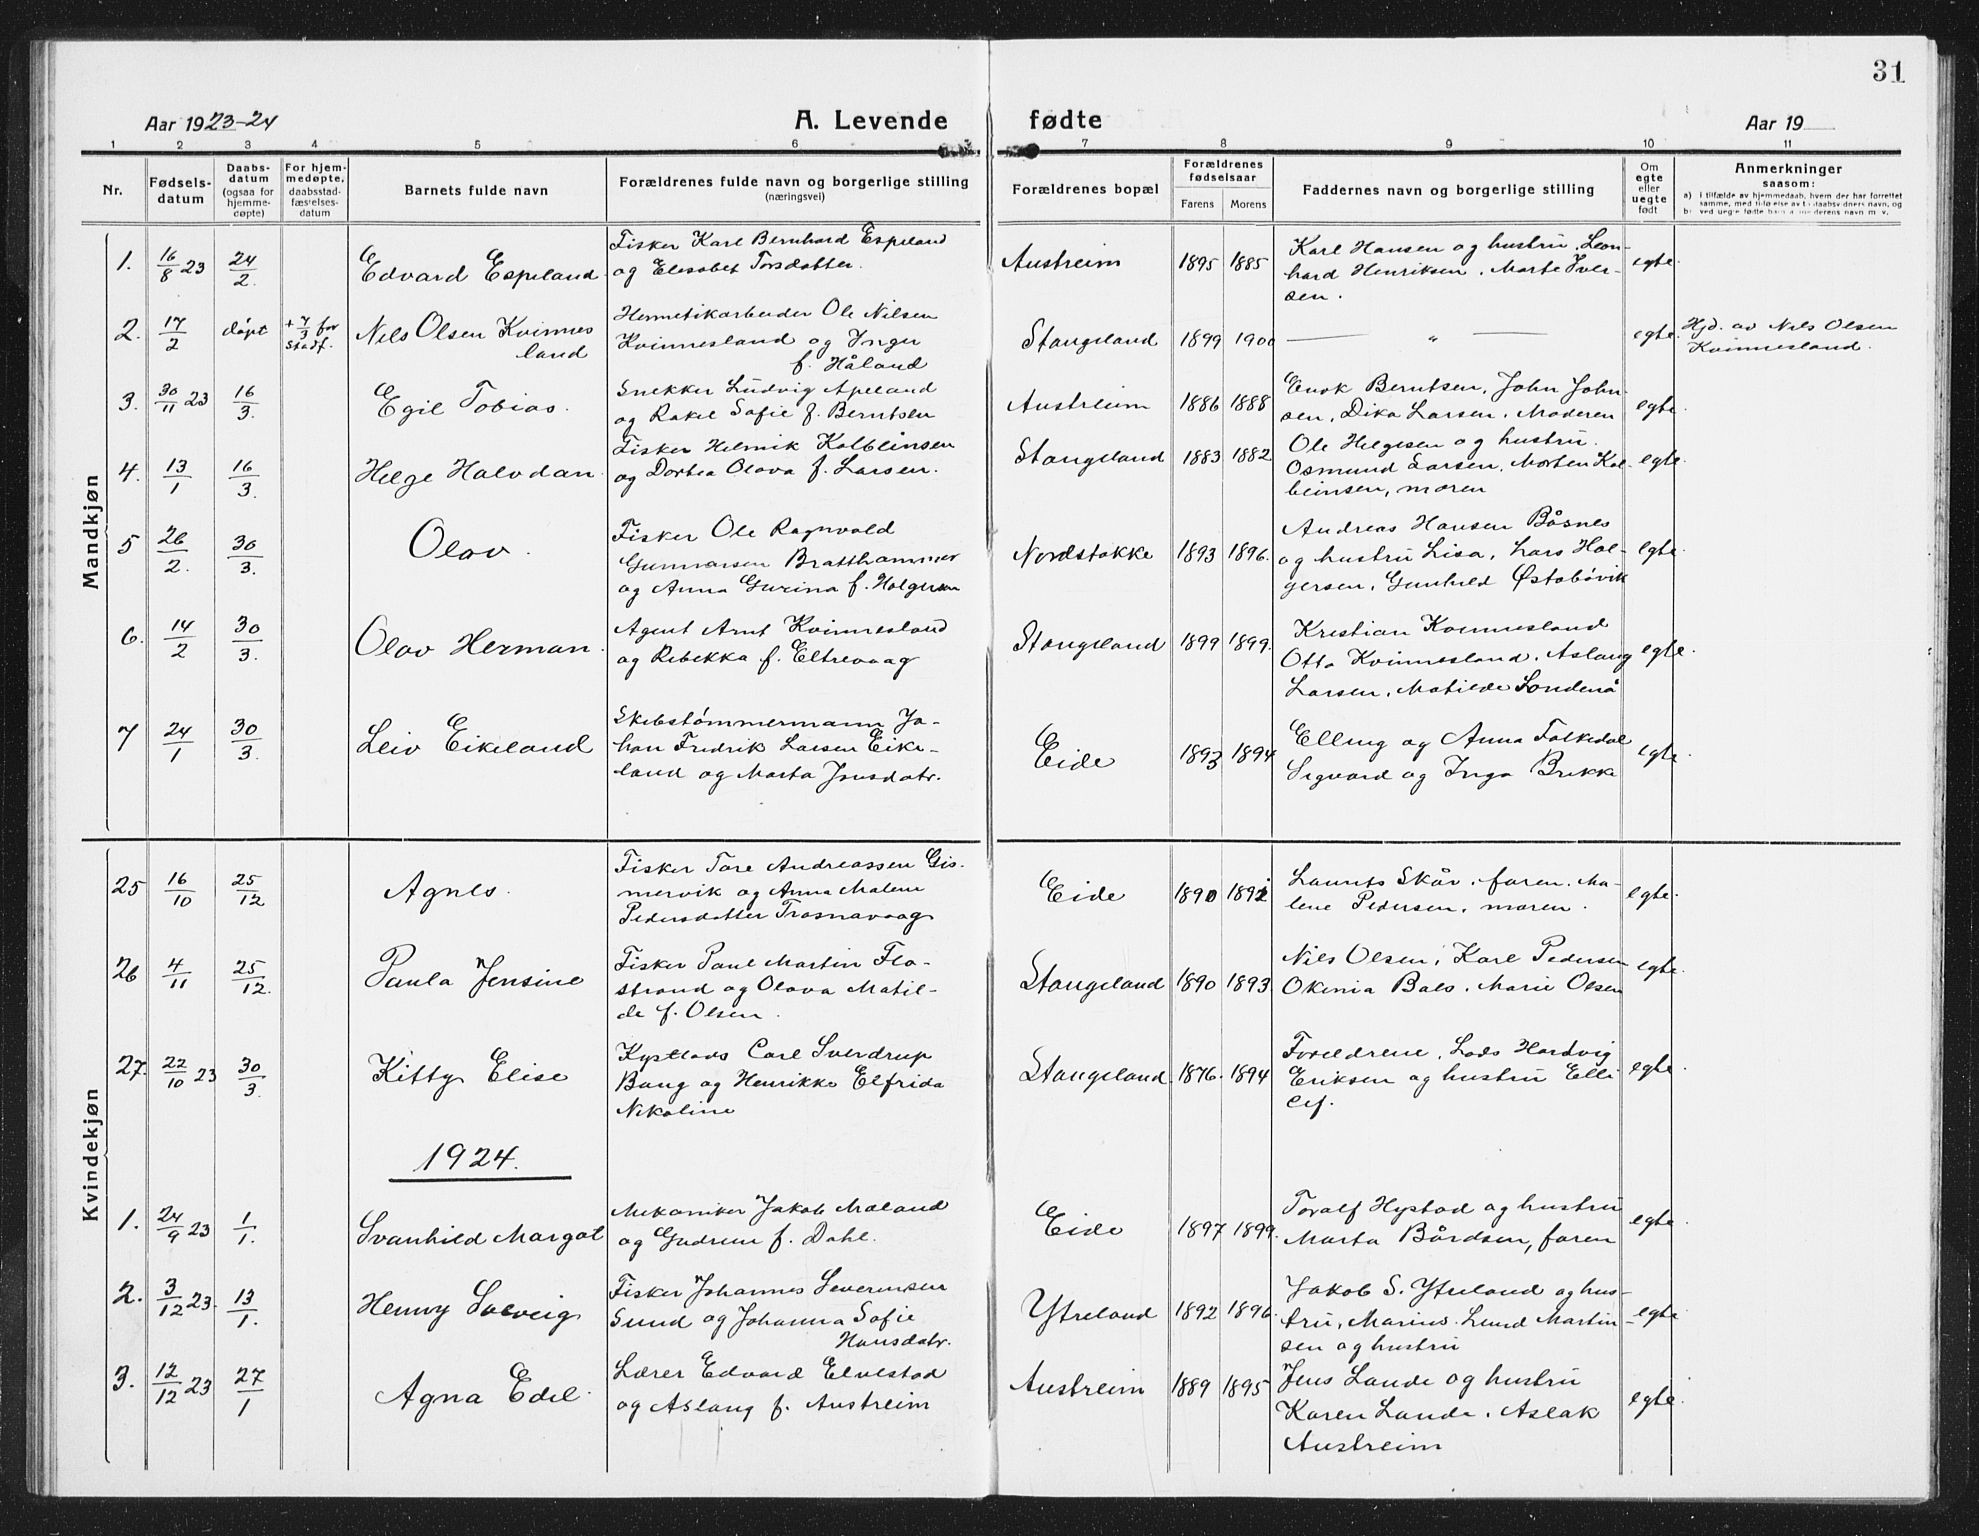 31
Aar 1923-24 A. Levende fødte Aar 19
1 2 3 4 5 6 7 8 9 10 11
Nr. Fødsels-datum Daabs-datum (ogsaa for hjemme-døpte) For hjem-medøpte, daabsstad-fæstelses-datum Barnets fulde navn Forældrenes fulde navn og borgerlige stilling (næringsvei) Forældrenes bopæl Forældrenes fødselsaar Farens Morens Faddernes navn og borgerlige stilling Om egte eller uegte født Anmerkninger saasom:
a) i tilfælde av hjemmedaab, hvem der har forrettet samme, med tilføielse av
b) ved uegte fødte barn
Mandkjøn
1. 16/8 23 24/2. Edvard Espeland Fisker Karl Bernhard Espeland Austreim 1895 1885 Karl Hansen og hustru, Leon- egte.
og Elesabet Torsdatter. hard Henriksen, Marte Iver-
sen.
2. 17/2 døpt + 7/3 før stadf. Nils Olsen Kvinnes Hermetikarbeider Ole Nilsen Stangeland 1899 1900 — " — egte. Hjd. av Nils Olsen
land Kvinnesland og Inger Kvinnesland.
f. Håland
3. 30/11 23 16/3. Egil Tobias. Snekker Ludvig Apeland Austreim 1886 1888 Enok Berntsen, John John- egte.
og Rakel Sofie f. Berntsen sen, Dika Larsen, Moderen
4. 13/1 16/3. Helge Halvdan. Fisker Helmik Kolbeinsen Stangeland 1883 1882 Ole Helgesen og hustru. egte.
og Dortea Olava f. Larsen. Osmund Larsen, Morten Kol-
beinsen, moren
5 26/2. 30/3. Olav. Fisker Ole Ragnvald Nordstokke 1893 1896. Andreas Hansen Båsnes egte.
Gunnarsen Bratthammer og hustru Lisa, Lars Hol-
og Anna Gurina f. Holgersen gersen, Gunhild Østabøvik
6. 14/2 30/3. Olav Herman. Agent Arnt Kvinnesland Stangeland 1899 1899. Kristian Kvinnesland egte.
og Rebekka f. Eltrevaag Otto Kvinnesland, Aslaug
Larsen, Matilde Sondenå
7 24/1 30/3. Leiv Eikeland Skibstømmermann Jo- Eide 1893 1894 Elling og Anna Falkedal egte
han Fredrik Larsen Eike- Sigvard og Inga Brekke
land og Marta Jonsdatr.
Kvindekjøn
25 16/10 25/12 Agnes. Fisker Tore Andreassen Gis- Eide 1890 1892 Laurits Skår, faren, Ma- egte.
mervik og Anna Malene lene Pedersen, moren.
Pedersdatter Trosnavaag
26 4/11 25/12. Paula Jensine Fisker Paul Martin Flo- Stangeland 1890 1893 Nils Olsen, Karl Pedersen egte.
strand og Olava Matil- Okinia Bals, Marie Olsen
de f. Olsen.
27. 22/10 23 30/3. Kitty Elise Kystlods Carl Sverdrup Stangeland. 1876. 1894 Foreldrene, Lods Hardvig egte.
Bang og Henrikke Elfrida Eriksen og hustru Elli
Nikoline
1924.
1. 24/9 23 1/1. Svanhild Margot Mekaniker Jakob Maland Eide 1897 1899. Toralf Hystad og hustru egte.
og Gudrun f. Dahl. Marta Bårdsen, faren
2. 3/12 23. 13/1. Henny Solveig Fisker Johannes Severinsen Ytreland 1892 1896. Jakob S. Ytreland og hus- egte
Sund og Johanna Sofie tru, Marius Lund Martin-
Hansdatr. sen og hustru
3. 12/12 23 27/1 Agna Edel. Lærer Edvard Elvestad Austreim 1889 1895 Jens Lande og hustru egte.
og Aslaug f. Austreim Karen Lande, Aslak
Austreim